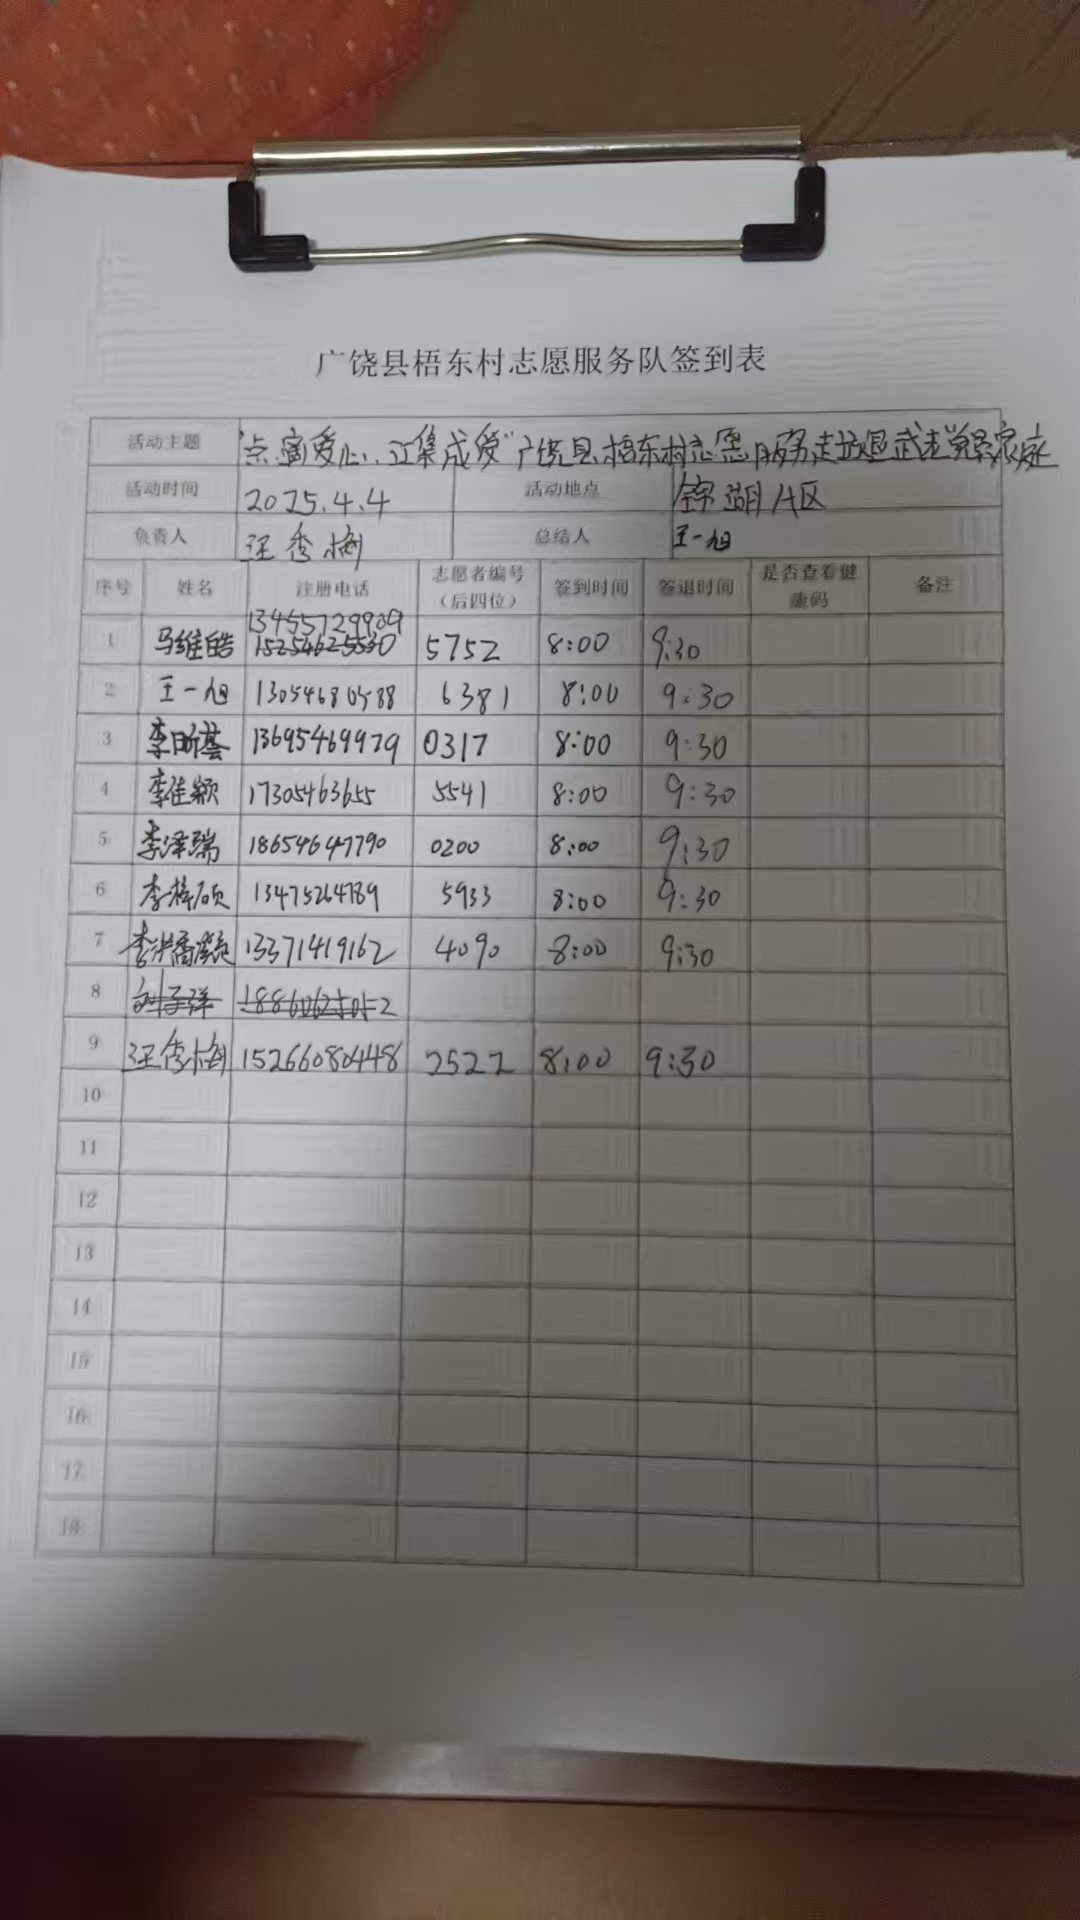 广饶县梧东村志愿服务队签到表
活动主题 "点滴爱心,汇集成爱"广饶县梧东村志愿服务走访退武老党员家庭
活动时间 2025.4.4 活动地点 锦湖A区
负责人 汪秀梅 总结人 王一旭
序号 姓名 注册电话 志愿者编号(后四位) 签到时间 签退时间 是否查看健康码 备注
13455729909
1 马维皓 15254625530 5752 8:00 9:30
2 王一旭 13054680588 6381 8:00 9:30
3 李昕蓉 13695469979 0317 8:00 9:30
4 李佳颖 17305463655 5541 8:00 9:30
5 李泽瑞 18654647790 0200 8:00 9:30
6 李梓硕 13475264789 5933 8:00 9:30
7 李洪 13371419162 4090 8:00 9:30
8 刘子洋
9 汪秀梅 15266080448 2522 8:00 9:30
10
11
12
13
14
15
16
17
18